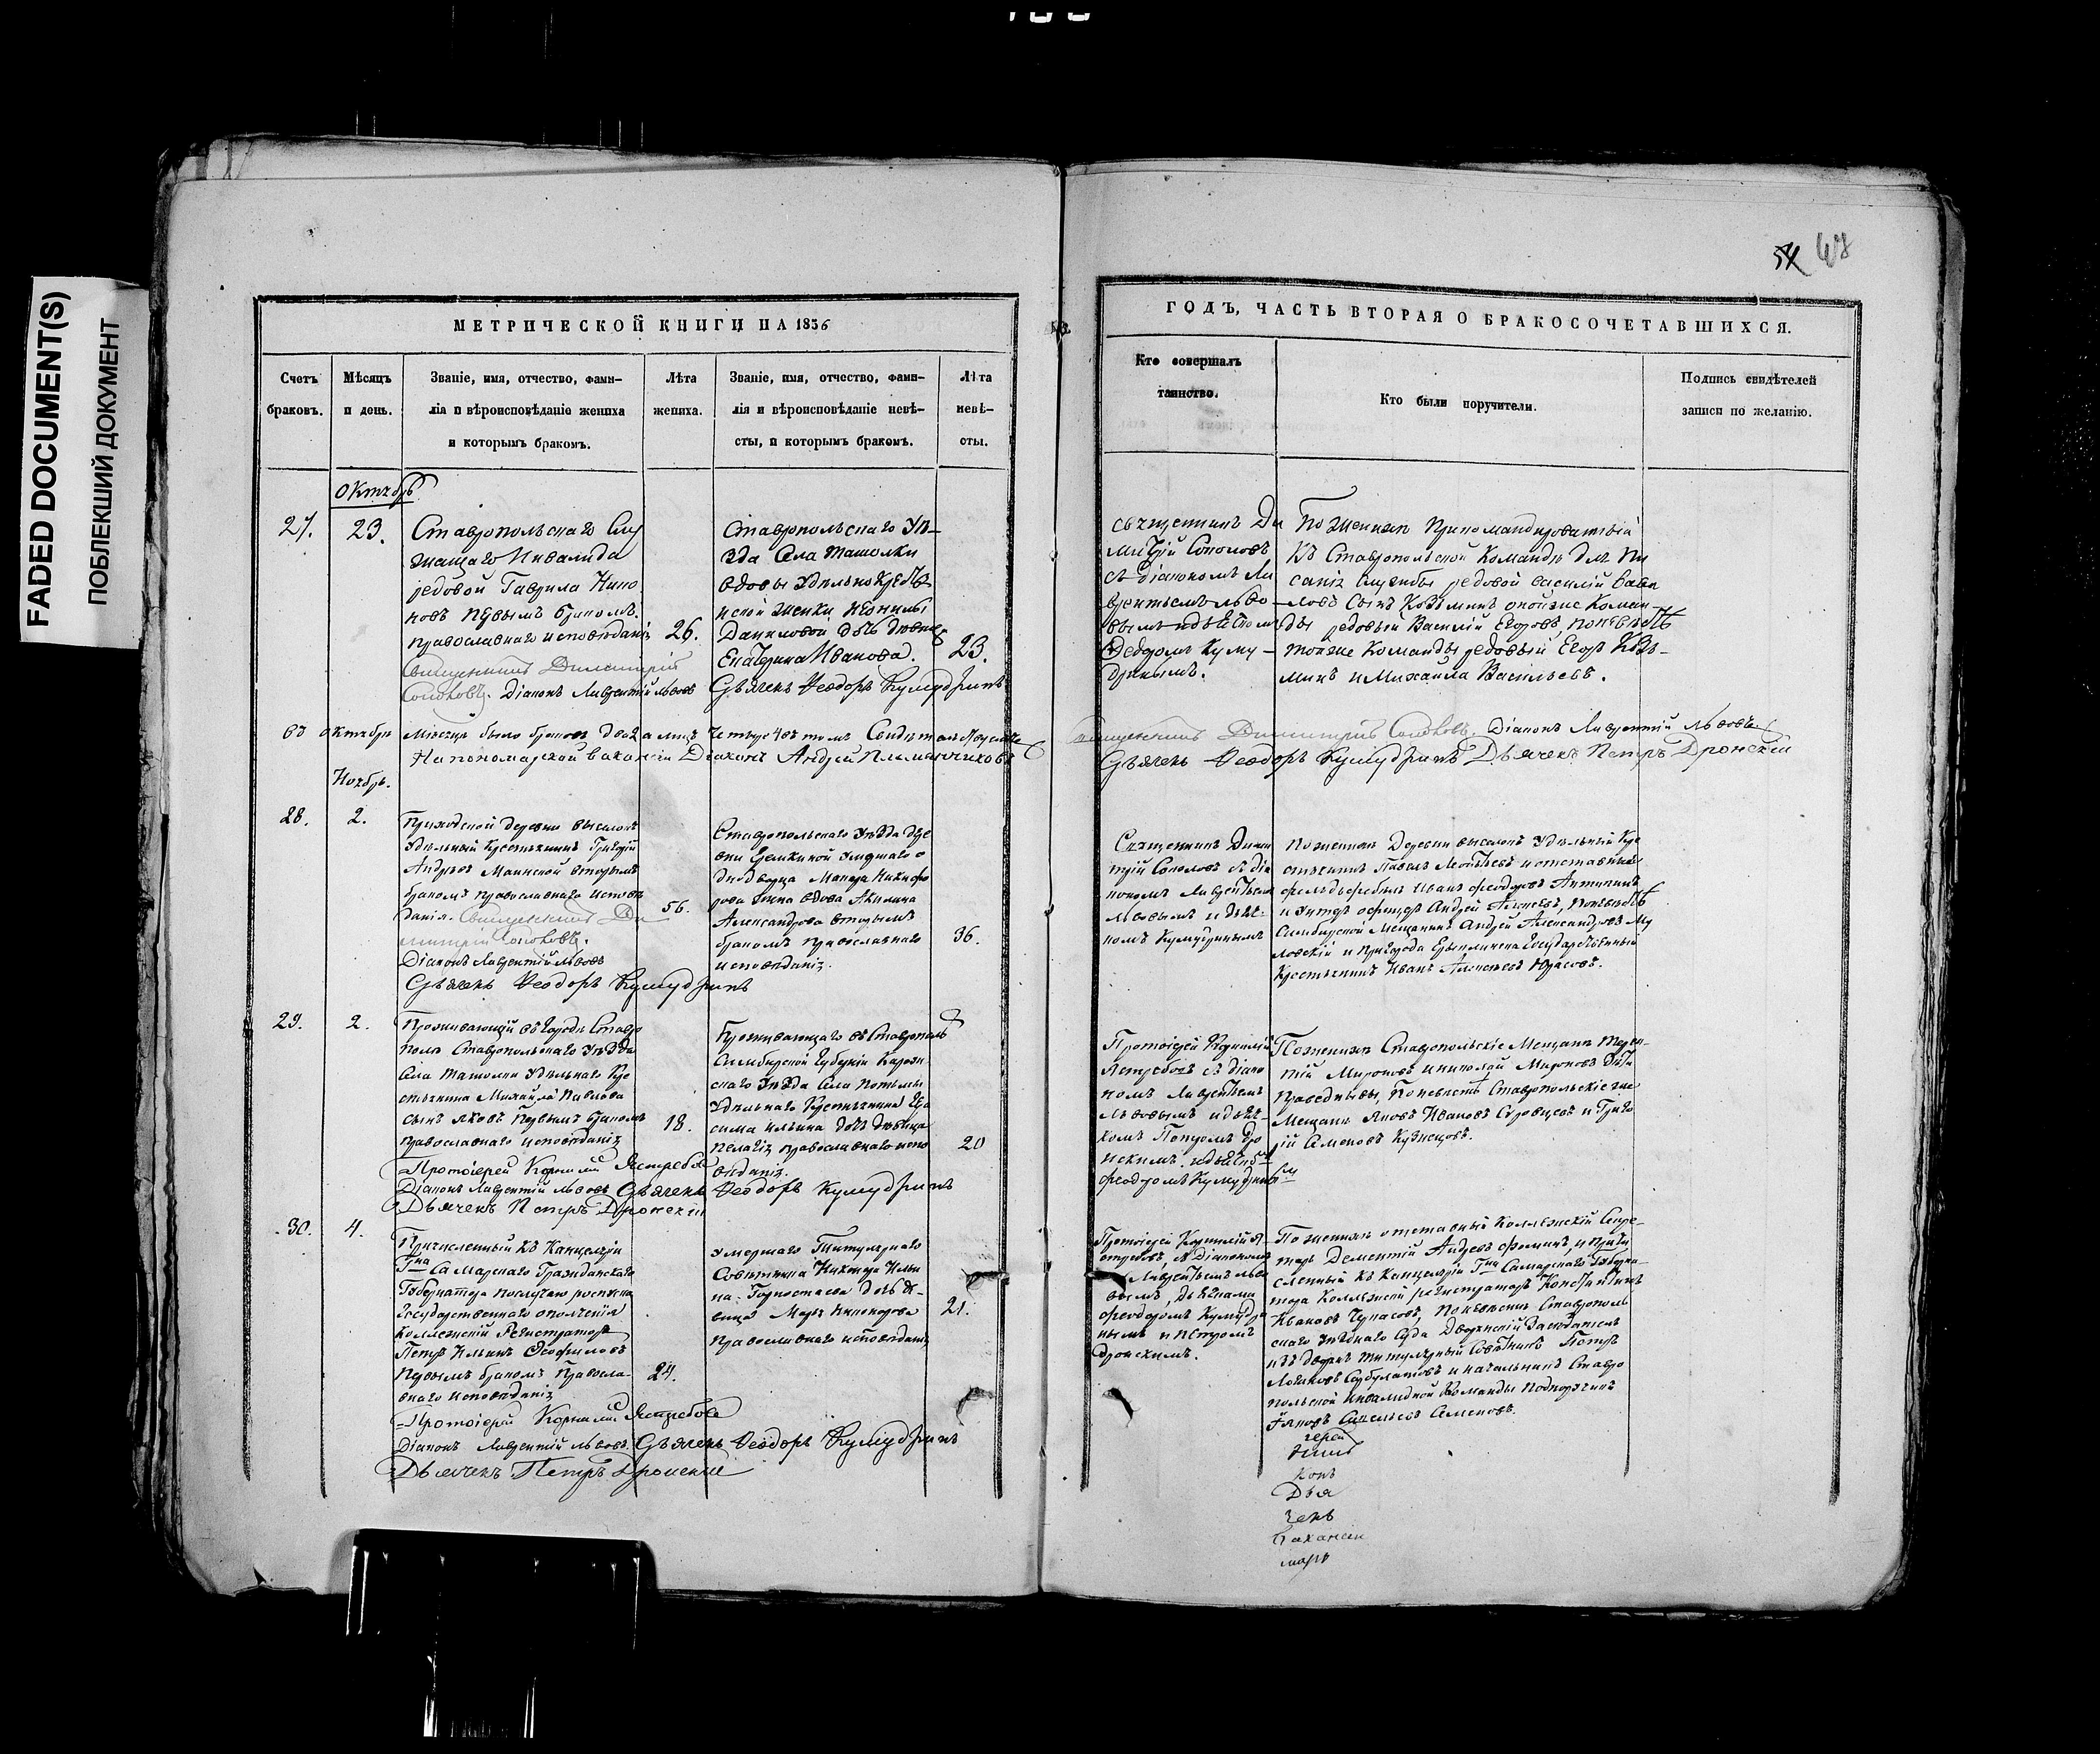 FADED DOCUMENT(S)
ПОБЛЕКШИЙ ДОКУМЕНТ
48
МЕТРИЧЕСКОЙ КНИГИ НА 1856
Счетъ браковъ.
Мѣсяцъ и день.
Званіе, имя, отчество, фами-
лія и вѣроисповѣданіе жениха
и которымъ бракомъ.
Лѣта жениха.
Званіе, имя, отчество, фами-
лія и вѣроисповѣданіе невѣ-
сты, и которымъ бракомъ.
Лѣта невѣ-
сты.
Октябрь
27.
23.
Ставропольскаго Слу
жащаго Инвалида
редовой Гаврила Нико
новъ первымъ бракомъ.
православнаго исповѣданія
26.
Священникъ Димитрій
Соколовъ. Діаконъ Лаврентій Львовъ
Ставропольскаго Уѣ-
зда Села Ташолки
вдовы удѣльно крестья
нской женки
Даниловой дочь дѣвица
Екатерина Иванова.
23.
Дьячекъ Ѳеодоръ Кумудринъ
въ Октябрѣ мѣсяцѣ было браковъ двадцать четыре въ томъ
На пономарской вакансіи Діаконъ Андрей Племянниковъ
Ноябрь.
28.
2.
Приходской деревни выселокъ
Удѣльный Крестьянинъ Григорій
Андреевъ вторымъ
бракомъ православнаго исповѣ
данія. Священникъ Ди
митрій Соколовъ.
Діаконъ Лаврентій Львовъ
Дьячекъ Ѳеодоръ Кумудринъ
56.
Ставропольскаго Уѣзда дере
вни умершаго о
днодворца Никифо
рова жена вдова Акилина
Александрова вторымъ
бракомъ православнаго
исповѣданія.
36.
29.
2.
Проживающій въ городѣ Ставро
полѣ Ставропольскаго Уѣзда
Села Ташолки Удѣльнаго Кре
стьянина Михайла Павлова
сынъ Яковъ первымъ бракомъ
православнаго исповѣданія
18.
Протоіерей Корнилій Ястребовъ
Діаконъ Лаврентій Львовъ Дьячекъ Ѳеодоръ Кумудринъ
Дьячекъ Петръ Дронскій
Проживающаго въ Ставрополѣ
Симбирской Губерніи Карсун
скаго Уѣзда Села Потьмы
Удѣльнаго Крестьянина Гера
сима Ильина дочь дѣвица
Пелагія православнаго испо
вѣданія.
20
30.
4.
Причисленный къ Канцеляріи
Гна Самарскаго Гражданскаго
Губернатора по случаю роспуска
Государственнаго ополченія
Коллежскій Регистраторъ
Петръ Ильинъ Ѳеофиловъ
первымъ бракомъ Правосла
внаго исповѣданія
24.
Протоіерей Корнилій Ястребовъ
Діаконъ Лаврентій Львовъ Дьячекъ Ѳеодоръ Кумудринъ
Дьячекъ Петръ Дронскій
Умершаго Титулярнаго
Совѣтника Никанора Ильи
на Горностаева дочь дѣ-
вица Марья Никанорова
Православнаго исповѣданія
21.
ГОДЪ, ЧАСТЬ ВТОРАЯ О БРАКОСОЧЕТАВШИХСЯ.
Кто совершалъ
таинство.
Кто были поручители.
Подпись свидѣтелей
записи по желанію.
Священникъ Ди
митрій Соколовъ
съ діакономъ Ла
врентьемъ Льво
вымъ и дьячкомъ
Ѳеодоромъ Куму-
дринымъ.
По женихѣ Прикомандированный
къ Ставропольской Командѣ для пи
санія службы редовой Василій
ловъ Сынъ Козьминъ оной же Коман-
ды редовый Василій Егоровъ, по невѣстѣ
той же Команды редовый Егоръ Козь-
минъ и Михайла Васильевъ.
Священникъ Димитрій Соколовъ Діаконъ Лаврентій Львовъ
Дьячекъ Ѳеодоръ Кумудринъ Дьячекъ Петръ Дронскій
Священникъ Дими
трій Соколовъ съ діа
кономъ Лаврентьемъ
Львовымъ и дьяч-
комъ Кумудринымъ
По женихѣ Деревни выселокъ Удѣльный Кре
стьянинъ Павелъ Леонтьевъ и отставный
фельдфебель Иванъ Ѳеодоровъ
и унтеръ офицеръ Андрей Алексѣевъ, по невѣстѣ
Симбирской Мещанинъ Андрей Александровъ
ловскій и Пригорода Ерыклинска Государственный
Крестьянинъ Иванъ Алексѣевъ Юрасовъ.
Протоіерей Корнилій
Ястребовъ съ діако
номъ Лаврентьемъ
Львовымъ и дьяч-
комъ Петромъ Дро
нскимъ и дьячкомъ
Ѳеодоромъ Кумудринымъ
По женихѣ Ставропольскіе Мещане Терен-
тій Мироновъ и Николай Мироновъ дѣти
Праведновы, По невѣстѣ Ставропольскіе же
Мещане Яковъ Ивановъ Суровцевъ и Григо
рій Семеновъ Кузнецовъ.
Протоіерей Корнилій Я-
стребовъ, съ Діакономъ
Лаврентьемъ Льво
вымъ, дьячками
Ѳеодоромъ Кумудри
нымъ и Петромъ
Дронскимъ.
По женихѣ отставный Коллежскій Секре-
тарь Дементій Андреевъ Ѳоминъ, и Причи
сленный къ Канцеляріи Гна Самарскаго Губерна-
тора Коллежскій регистраторъ Константинъ
Ивановъ Черкасовъ, По невѣстѣ Ставрополь
скаго уѣзднаго Суда Дворянскій Засѣдатель
изъ дворянъ титулярный Совѣтникъ Петръ
и начальникъ Ставро
польской инвалидной Команды Подпоручикъ
Семеновъ.
герей
конъ
Дья
чекъ
Ваканси
марь